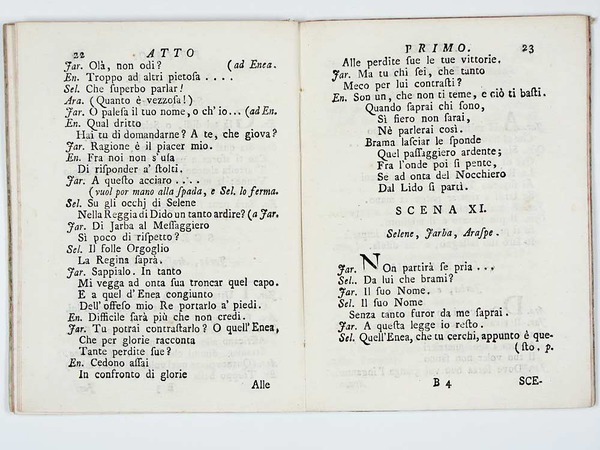 22 ATTO
Jar. Olà, non odi? (ad Enea.
En. Troppo ad altri pietosa . . . .
Sel. Che superbo parlar!
Ara. (Quanto è vezzosa!)
Jar. O palesa il tuo nome, o ch' io... (ad En.
En. Qual dritto
Hai tu di domandarne? A te, che giova?
Jar. Ragione è il piacer mio.
En. Fra noi non s'usa
Di risponder a' stolti.
Jar. A questo acciaro . . . .
(vuol por mano alla spada, e Sel. lo ferma.
Sel. Su gli occhj di Selene
Nella Reggia di Dido un tanto ardire? (a Jar.
Jar. Di Jarba al Messaggiero
Sì poco di rispetto?
Sel. Il folle Orgoglio
La Regina saprà.
Jar. Sappialo. In tanto
Mi vegga ad onta sua troncar quel capo.
E a quel d'Enea congiunto
Dell' offeso mio Re portarlo a' piedi.
En. Difficile sarà più che non credi.
Jar. Tu potrai contrastarlo? O quell'Enea,
Che per glorie racconta
Tante perdite sue?
En. Cedono assai
In confronto di glorie
Alle
PRIMO. 23
Alle perdite sue le tue vittorie.
Jar. Ma tu chi sei, che tanto
Meco per lui contrasti?
En. Son un, che non ti teme, e ciò ti basti.
Quando saprai chi sono,
Sì fiero non sarai,
Nè parlerai così.
Brama lasciar le sponde
Quel passaggiero ardente;
Fra l'onde poi si pente,
Se ad onta del Nocchiero
Dal Lido si partì.
SCENA XI.
Selene, Jarba, Araspe.
Jar. NOn partirà se pria . . .
Sel. Da lui che brami?
Jar. Il suo Nome.
Sel. Il suo Nome
Senza tanto furor da me saprai.
Jar. A questa legge io resto.
Sel. Quell'Enea, che tu cerchi, appunto è que-
(sto. p.
B 4 SCE-